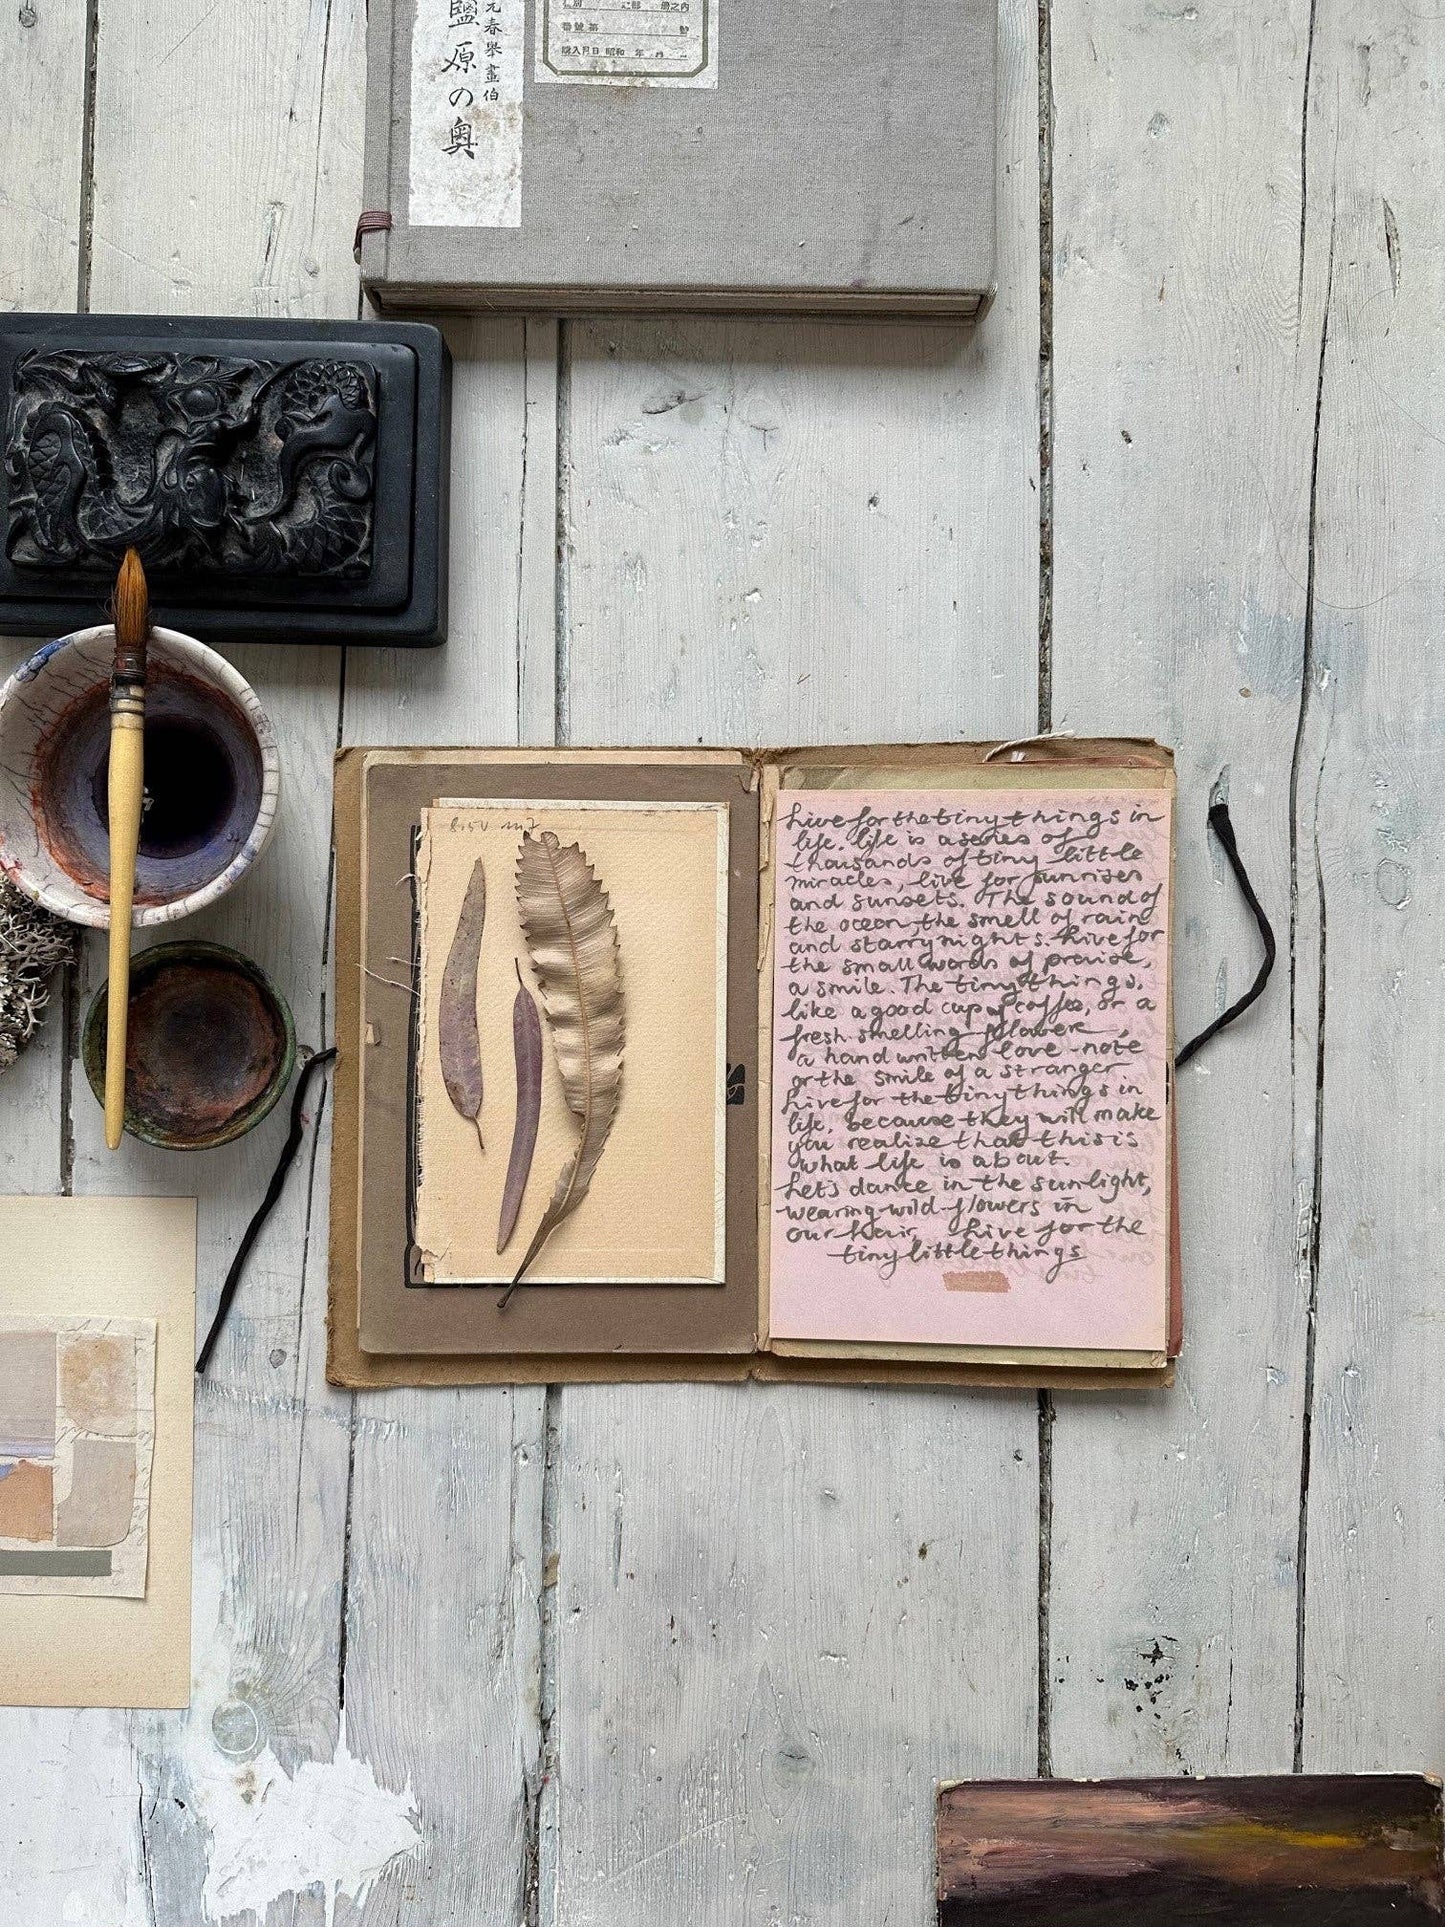 元春擧畫伯
鹽原の奥
番號 第 號
購入月日 昭和 年 月
Live for the tiny things in
life. life is a series of
thousands of tiny little
miracles, live for sunrises
and sunsets. The sound of
the ocean, the smell of rain
and starry nights. Live for
the small words of praise,
a smile. The tiny things,
like a good cup of coffee, or a
fresh smelling flower,
a hand written love-note
or the smile of a stranger
Live for the tiny things in
life, because they will make
you realize that this is
what life is about.
Let's dance in the sunlight,
wearing wild-flowers in
our hair, Live for the
tiny little things